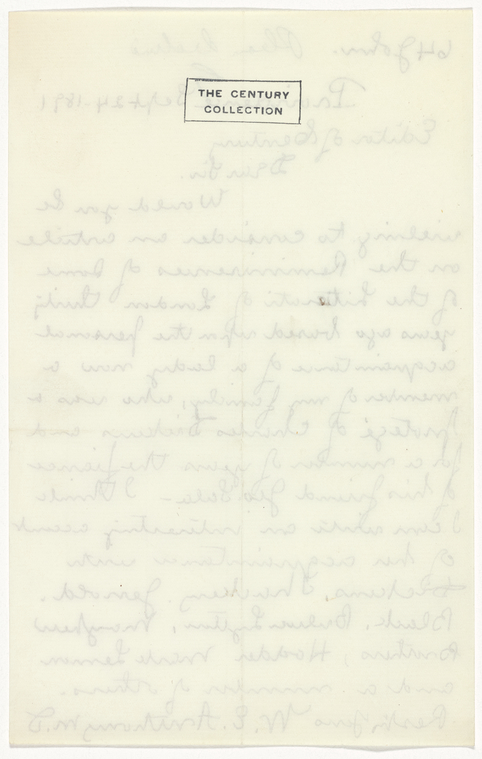 THE CENTURY
COLLECTION
64 John.
Providence Sept 24 1891
Editor of Century
Dear Sir.
Would you be
willing to consider an article
on the Reminiscences of some
of the Literati of London thirty
years ago based upon the personal
acquaintance of a lady now a
member of my family, who was a
protegé of Charles Dickens and
for a number of years the fiancee
of his friend Geo Sala - I think
I can write an interesting account
of her acquaintance with
Dickens, Thackery, Jerrold,
Black, Bulwer Lytton, Mayhew
Brothers, Hodder Mark Lemon
and a number of others.
Resp yours W. E. Anthony M.D